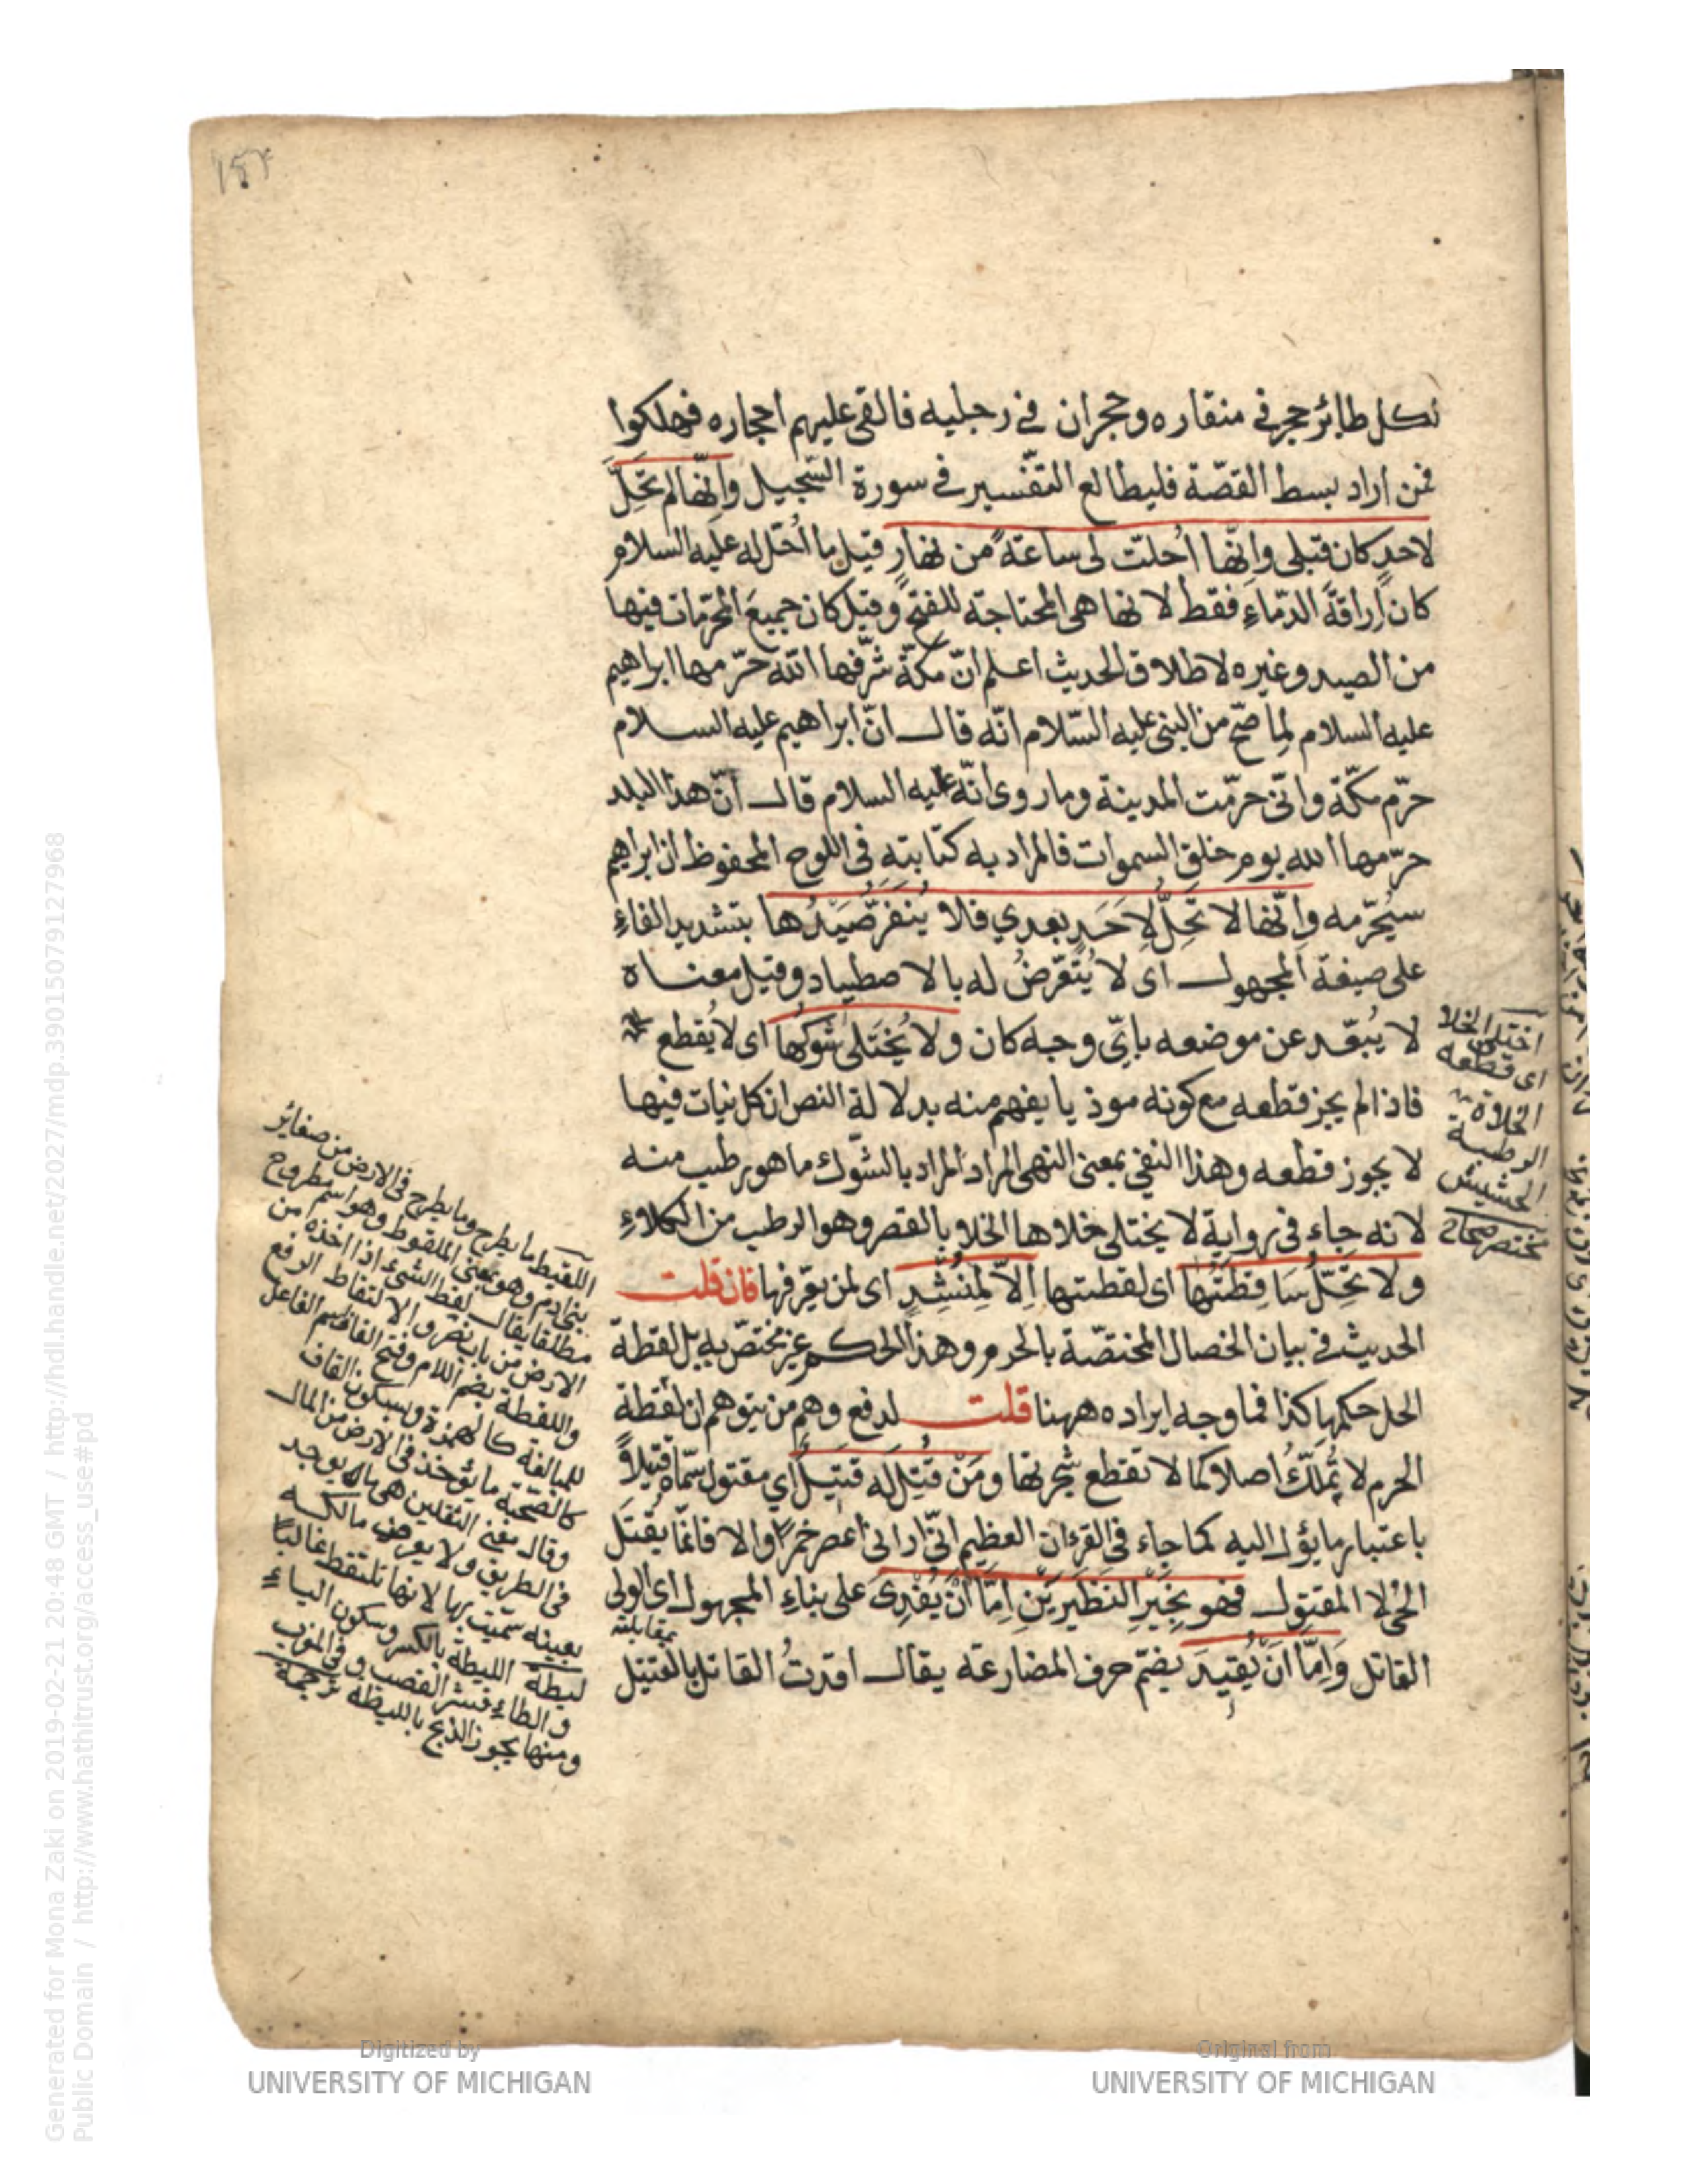 لكل طائر حجر في منقاره وحجران في رجليه فالقى عليهم احجاره فهلكوا
فمن اراد بسط القصّة فليطالع التفسير في سورة السّجيل وانّها لم تحلّ
لاحدٍ كان قبلى وانّها اُحلّت لى ساعة من نهارٍ قيل ما اُحلّ له عليه السلام
كان اراقةَ الدّماءِ فقط لانها هى المحتاجة للفتح وقيل كان جميعَ المحرّمات فيها
من الصيد وغيره لاطلاق الحديث اعلم انّ مكّة شرّفها الله حرّمها ابراهيم
عليه السلام لِما صحّ من النبى عليه السّلام انّه قال انّ ابراهيم عليه السلام
حرّم مكّة وانّى حرّمت المدينة وما روى انّه عليه السلام قال انّ هذا البلد
حرّمها الله يوم خلق السموات فالمراد به كتابته فى اللوح المحفوظ ان ابراهيم
سيُحرّمه وانّها لا تحِلّ لاِحَدٍ بعدي فلا يُنفَّرُ صَيْدُها بتشديد الفاءِ
على صيغة المجهول اى لا يُتعرّضُ له بالاصطياد وقيل معناه
لا يُبعّد عن موضعه بايّ وجه كان ولا يُختَلى شوكُها اى لا يُقطع
فاذا لم يجز قطعه مع كونه موذيا يفهم منه بدلالة النص ان كل نبات فيها
لا يجوز قطعه وهذا النفى بمعنى النهى المراد المراد بالشّوك ما هو رطيب منه
لانه جاء فى رواية لا يختلى خلاها الخلا بالقصر وهو الرطب من الكلاءِ
ولا تحِلّ سَاقِطَتُها اى لقطتها اِلاّ لِمُنْشِدٍ اى لمن يعرّفها فان قلت
الحديث فى بيان الخصال المختصّة بالحرم وهذا الحكم غير مختصّ به بل لقطة
الحل حكمها كذا فما وجه ايراده ههنا قلت لدفع وهم من يتوهم ان لقطة
الحرم لا يُملَّكُ اصلا كما لا تقطع شجرتها ومَنْ قُتِل له قَتيلٌ اي مقتول سمّاه قتيلاً
باعتبار ما يؤل اليه كما جاء فى القرءان العظيم انّى ارانى اعصر خمرًا والا فانّما يقتل
الحىّ لا المقتول فهو بِخَيْرِ النَظَيرَيْنِ اِمّا اَنْ يُفْدى على بناءِ المجهول اى الولى
بمقابلته
القاتل وَاِمّا اَنْ يُقيدَ بضمّ حرف المضارعة يقال اقدتُ القاتل بالقتيل
اختلى الخلا
اى قطعه
الخلاوة
الرطبة
الحشيش
مختصر صحاح
اللقيط ما يطرح وما يطرح فى الارض من صغاير
بنى ادم وهو بمعنى الملقوط وهو اسم مطروح
مطلقا يقال لقط الشىء اذا اخذه من
الارض من باب نصر والالتقاط الرفع
واللقطة بضم اللام وفتح القاف اسم الفاعل
للمبالغة كالهمزة وبسكون القاف
كالضحكة ما يؤخذ فى الارض من المال
وقال مفتى الثقلين هى مال يوجد
فى الطريق ولا يعرف مالكه
بعينه سمّيت بها لانها تلتقط غالبًا
ليطة الليطة بالكسر وسكون الياء
والطاءِ قشر القصب وفى المغرب
ومنها يجوز الذبح بالليطة ترجمة
Digitized by
UNIVERSITY OF MICHIGAN
Original from
UNIVERSITY OF MICHIGAN
Generated for Mona Zaki on 2019-02-21 20:48 GMT / http://hdl.handle.net/2027/mdp.39015079127968
Public Domain / http://www.hathitrust.org/access_use#pd